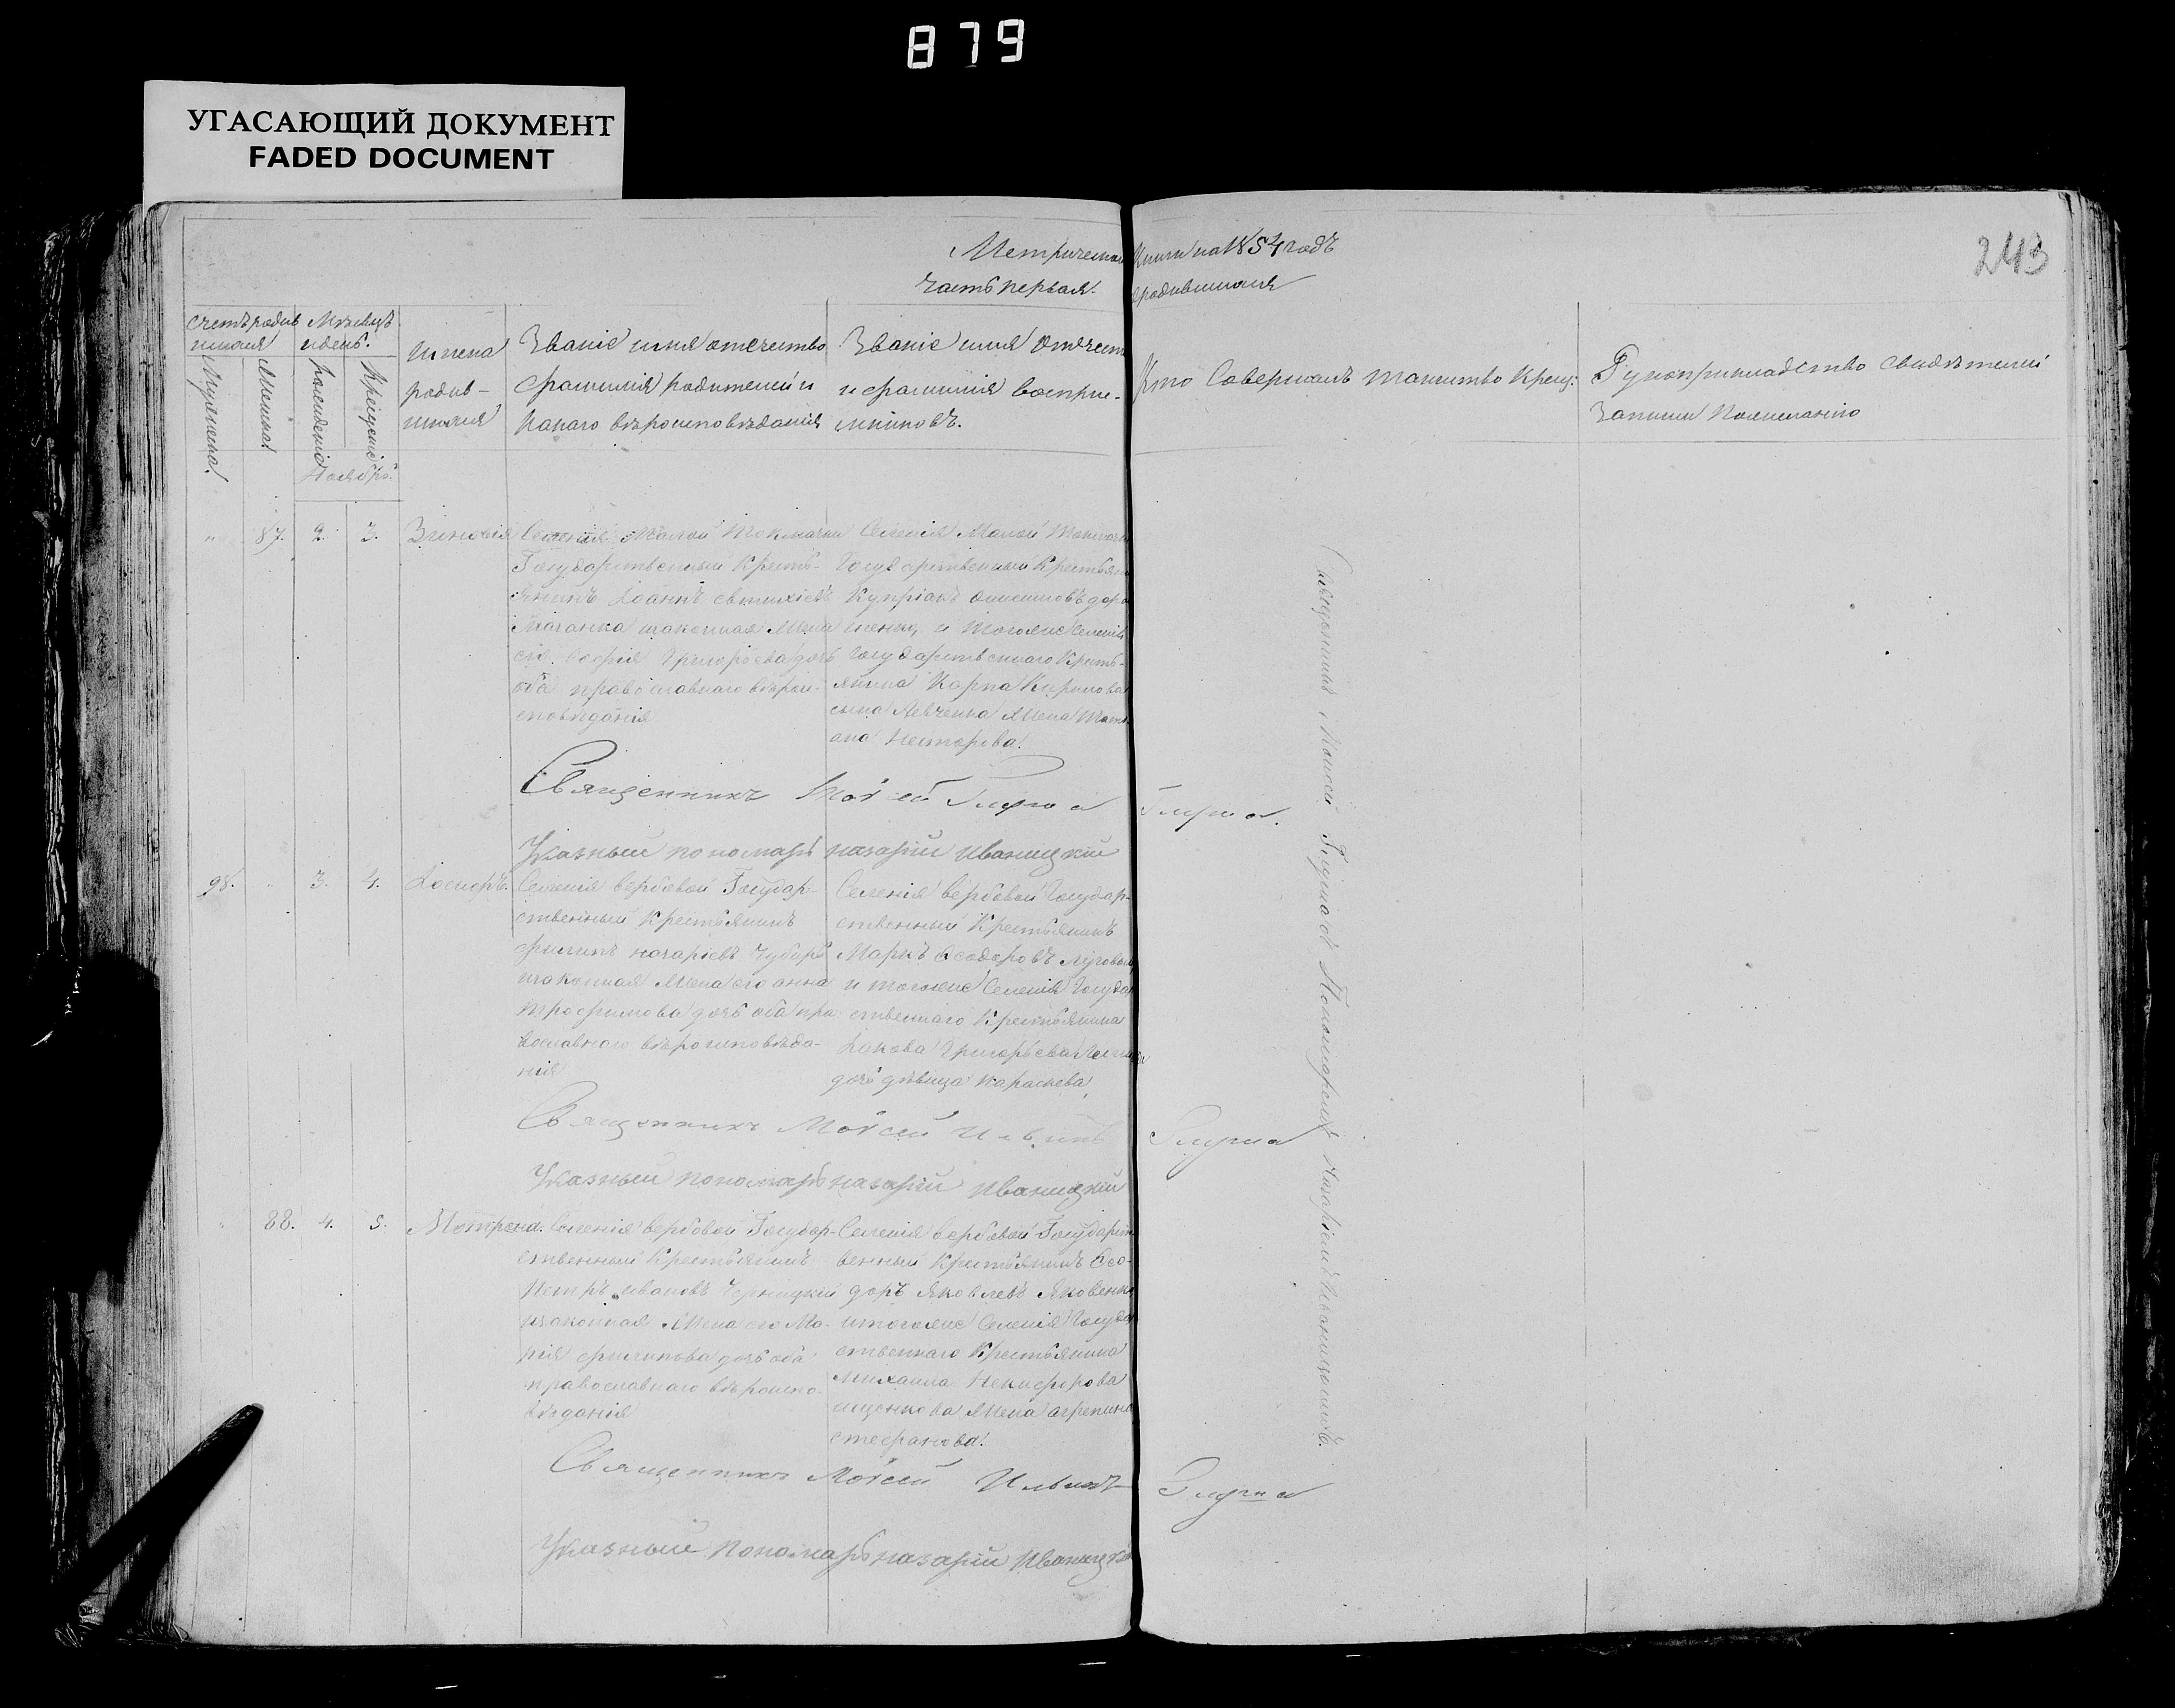 879
УГАСАЮЩИЙ ДОКУМЕНТ
FADED DOCUMENT
243
Метрической книги на 1854 годъ
Часть первая о родившихся
Счетъ родив
шихся
Мужеска
Женска
Мѣсяцъ
и день.
рожденіе
крещеніе
Имена
родив-
шихся
Званіе имя отечество
фамилія родителей и
какого вѣроисповѣданія
Званіе имя отечест
и фамилія воспрі-
мниковъ.
Кто Совершалъ таинство крещ:
Рукоприкладство свидѣтелей
записи по желанію
Ноябрь.
" 87. 2. 3. Зиновія
Селенія Малой Токмачки
Государственный Кресть-
янинъ Іоаннъ Евтихіевъ
законная жена
его Софія Григорьева дочь
оба православнаго вѣрои-
сповѣданія
Селенія Малой Токмачки
Государственный Крестьянин
Купріанъ
и тогоже Селенія
Государственнаго Кресть-
янина Карпа Кирилова
сына Левченка жена Тать-
яна Несторова.
Священникъ Моѵсей Глуша
Указный пономарь Назарій Иваницкій
98. " 3. 4. Іосифъ.
Селенія вербовой Государ-
ственный Крестьянинъ
Филипъ Назаріевъ
законная жена его Анна
Трофимова дочь оба пра
вославнаго вѣроисповѣда-
нія
Селенія вербовой Государ-
ственный Крестьянинъ
Маркъ Ѳеодоровъ Луговой
и тогоже Селенія Государ
ственнаго Крестьянина
Іакова Григорьева
дочь дѣвица Параскева,
Священникъ Моѵсей Ильинъ Глуша
Указный пономарь Назарій Иваницкій
" 88. 4. 5. Мотрона.
Селенія вербовой Государ-
ственный Крестьянинъ
Петръ Ивановъ Черницкій
законная жена его Ма-
рія Филипова дочь оба
православнаго вѣроиспо-
вѣданія
Селенія вербовой Государст
венный Крестьянинъ Ѳео-
доръ Яковлевъ Яковенко
и тогоже Селенія Государ
ственнаго Крестьянина
Михаила Никифорова
ищенкова жена Агрепина
Стефанова.
Священникъ Моѵсей Ильинъ Глуша
Указный пономарь Назарій Иваницкій
Священникъ Моисей Глушая Пономаремъ Назаріемъ Иваницкимъ.